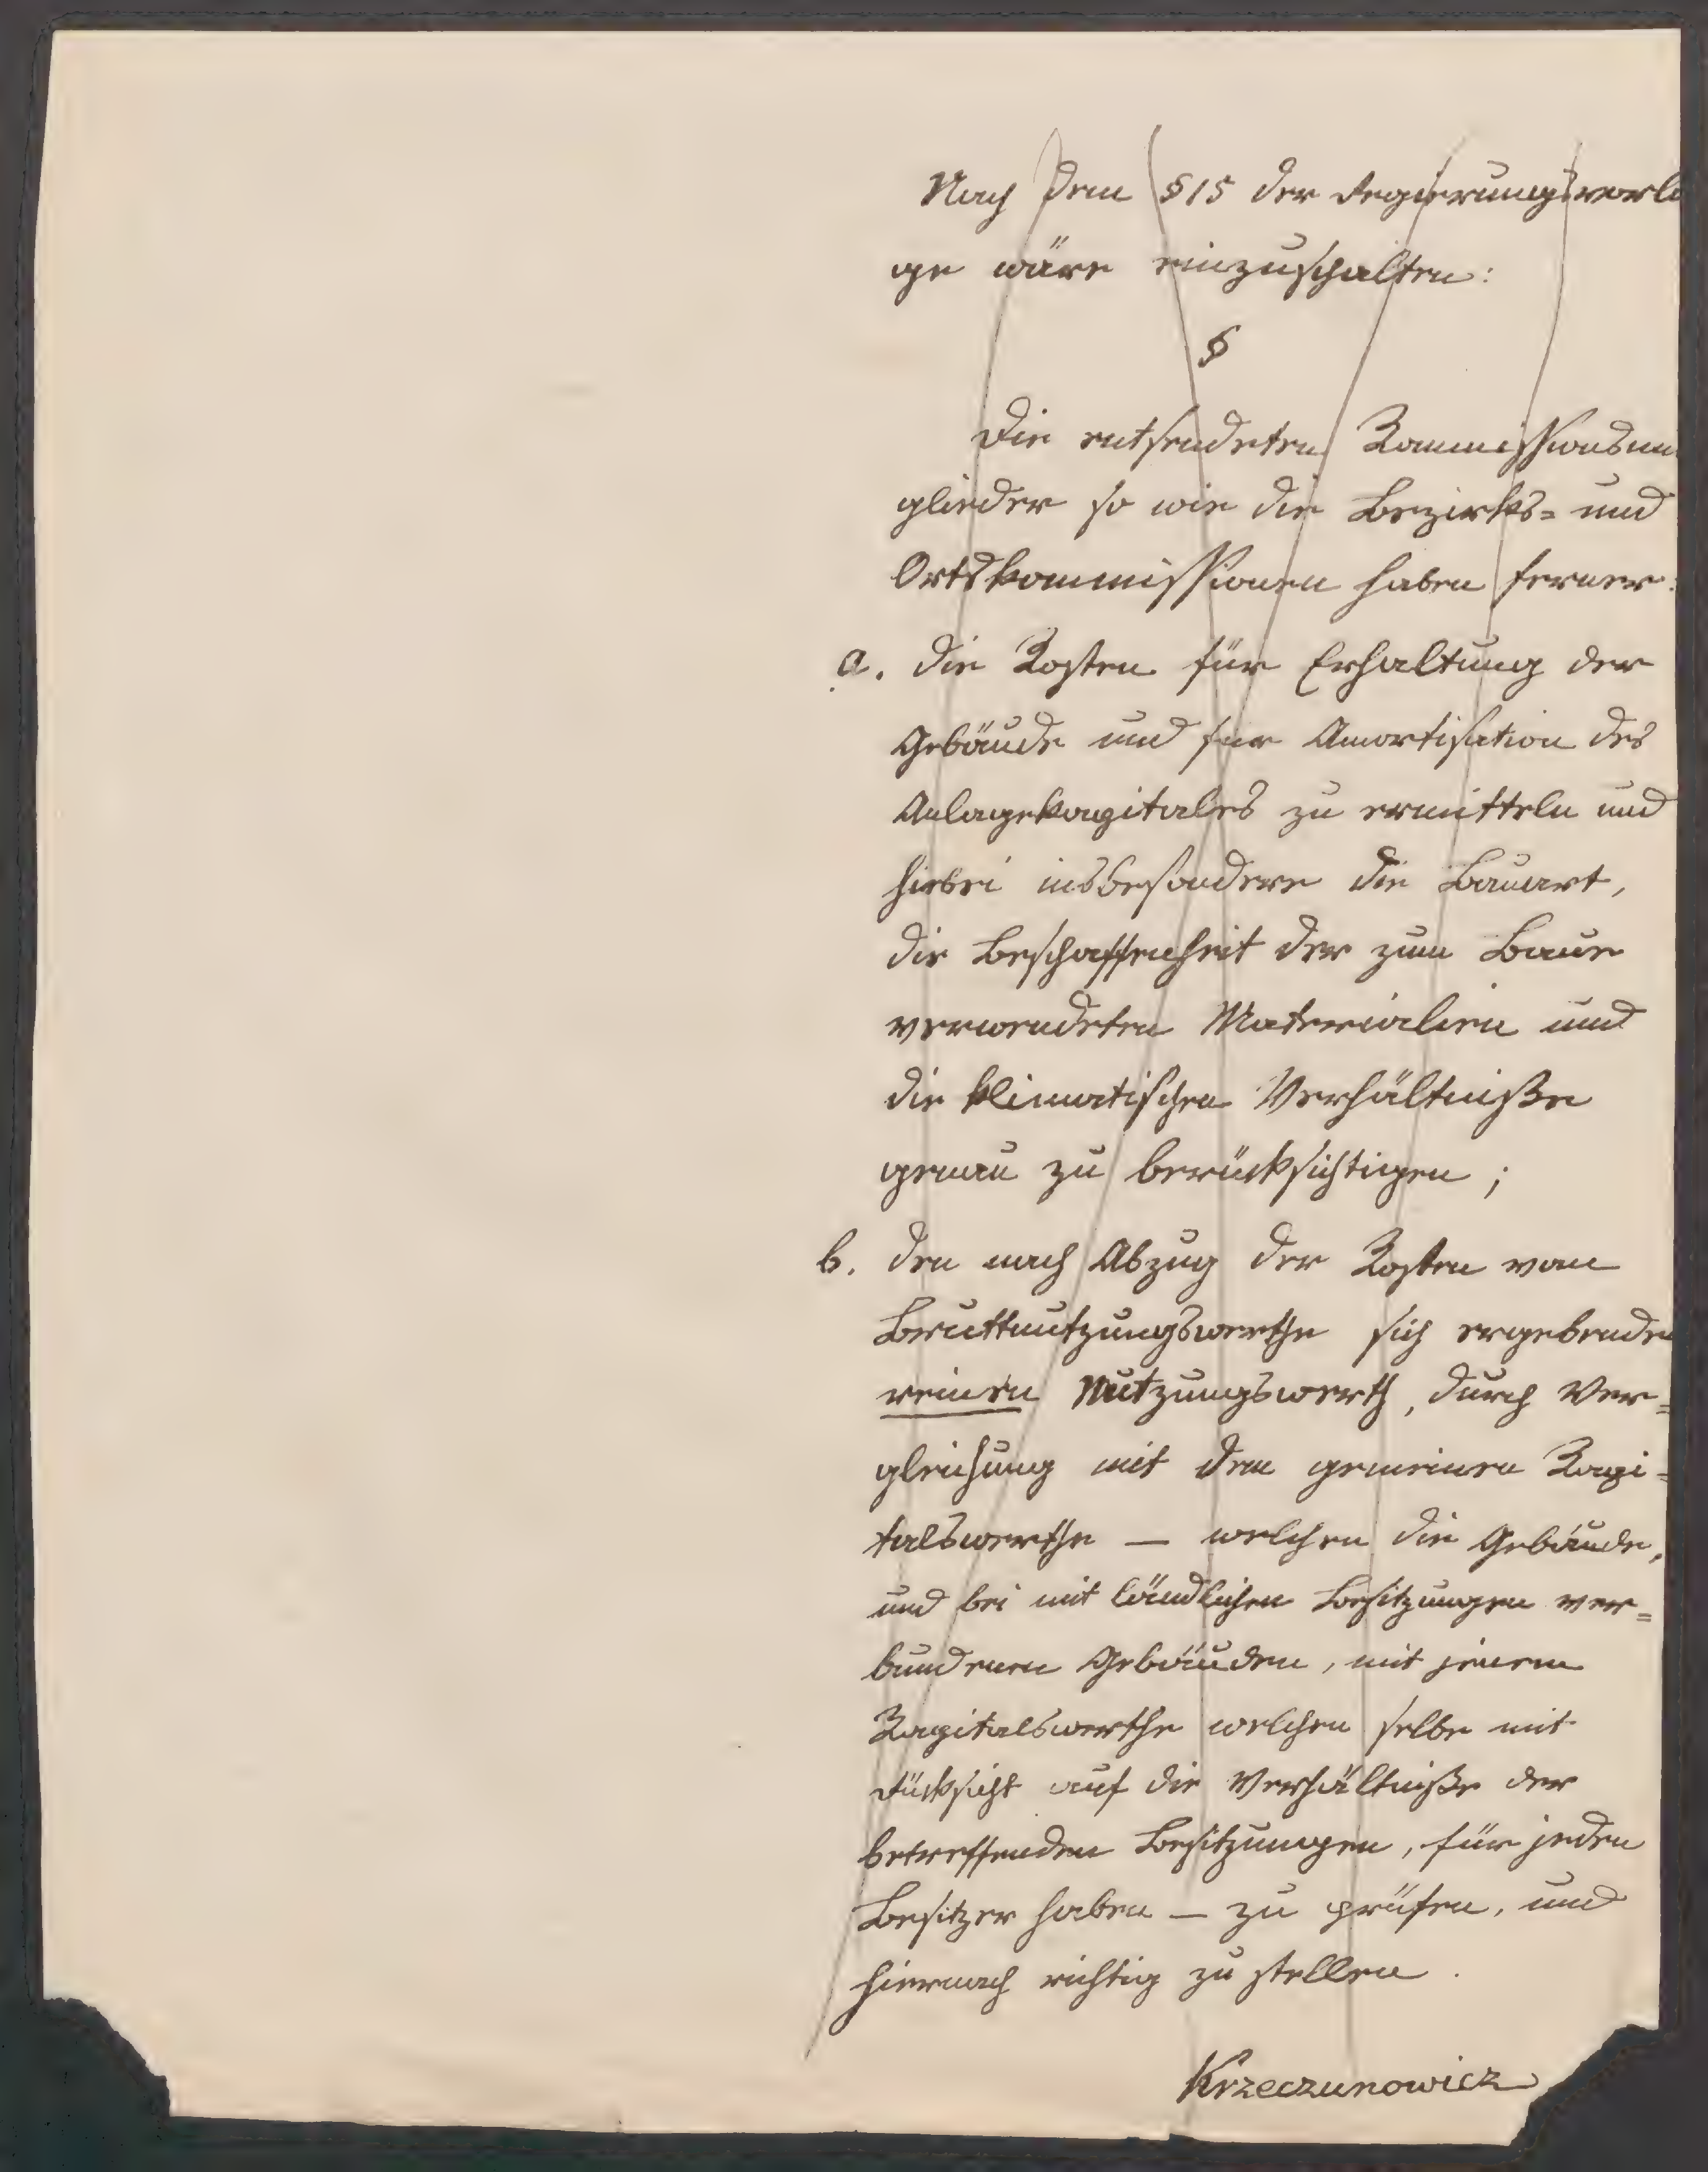 Nach dem § 15 der Regierungsvorla
ge wäre einzuschalten:
§
Die entsendeten Kommissionsmi
glieder so wie die Bezirks= und
Ortskommissionen haben ferner:
a. die Kosten für Erhaltung der
Gebäude und für Amortisation des
Anlagekapitales zu ermitteln und
hiebei insbesondere die Bauart,
die Beschaffenheit der zum Baue
verwendeten Materialien und
die klimatischen Verhältniße
genau zu berücksichtigen;
b. den nach Abzug der Kosten vom
Bruttnutzungswerthe sich ergebenden
reinen Nutzungswerth, durch Ver=
gleichung mit dem gemeinen Kapi=
talswerthe — welchen die Gebäude,
und bei mit ländlichen Besitzungen ver=
bundenen Gebäuden, mit jenem
Kapitalswerthe welchen selbe mit
Rücksicht auf die Verhältniße der
betreffenden Besitzungen, für jeden
Besitzer haben — zu prüfen, und
hiernach richtig zu stellen.
Krzeczunowicz